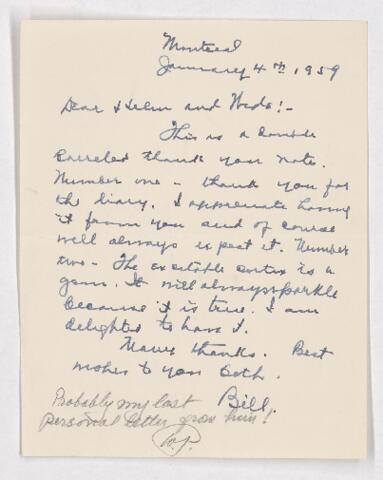 Montreal
January 4th 1959
Dear Helen and Wede! -
This is a double
barreled thank you note.
Number one - thank you for
the diary. I appreciate having
it from you and of course
will always expect it. Number
two - The excitable cortex is a
gem. It will always sparkle
because it is true. I am
delighted to have it.
Many thanks. Best
wishes to you both.
Bill.
Probably my last
personal letter from him!
W.P.